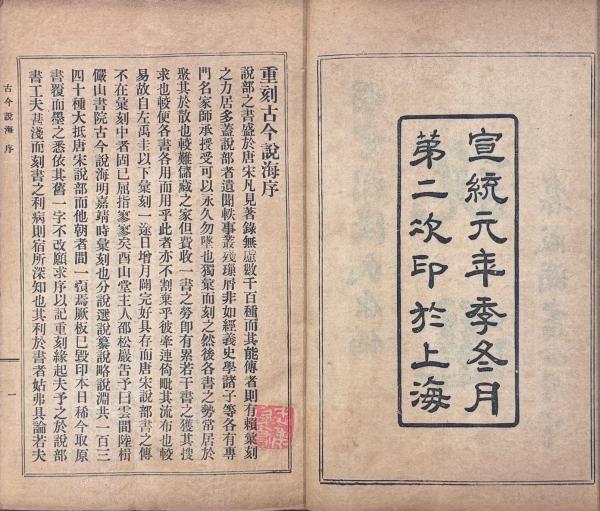 宣統元年季冬月
第二次印於上海
重刻古今說海序
說部之書盛於唐宋凡見著錄無慮數千百種而其能傳者則有賴彙刻
之力居多蓋說部者遺聞軼事叢殘璅屑非如經義史學諸子等各有專
門名家師承授受可以永久勿墜也獨彙而刻之然後各書之勢常居於
聚其於散也較難儲藏之家但費收一書之勞即有累若干書之獲其搜
求也較便各書各用而用乎此者亦不割棄乎彼牽連倚毗其流布也較
易故自左禹圭以下彙刻一途日增月闢完好具存而唐宋說部書之傳
不在彙刻中者固已屈指寥寥矣酉山堂主人邵松巖告予曰雲間陸楫
儼山書院古今說海明嘉靖時彙刻也分說選說纂說略說淵共一百三
四十種大抵唐宋說部而他朝者間一預焉厥板已毀印本日稀今取原
書覆而墨之悉依其舊一字不改願求序以記重刻緣起夫予之於說部
書工夫甚淺而刻書之利病則宿所深知也其利於書者姑弗具論若夫
古今說海 序
一